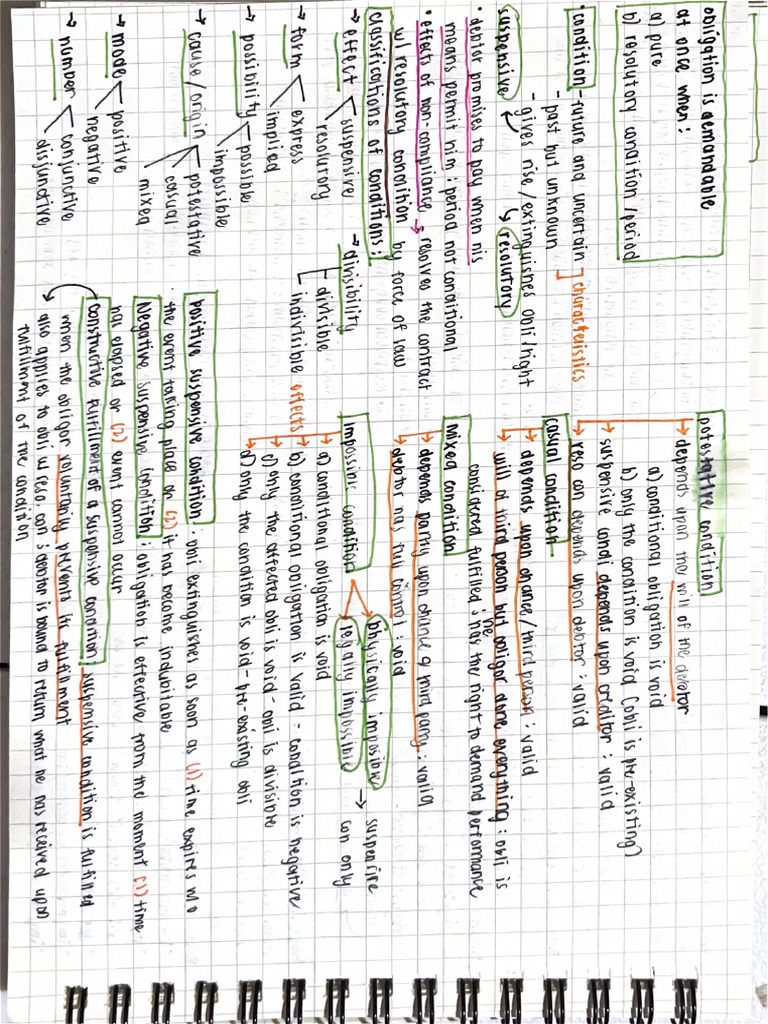 obligation is demandable
at once when:
a) pure
b) resolutory condition/period
• condition - future and uncertain ] characteristics
- past but unknown
- gives rise/extinguishes obli/right
suspensive
resolutory
• debtor promises to pay when his
means permit him : period not conditional
• effects of non-compliance → resolves the contract
w/ resolutory condition by force of law
classifications of conditions:
→ effect < suspensive
resolutory
→ form < express
implied
→ possibility < possible
impossible
→ cause/origin < potestative
casual
mixed
→ mode < positive
negative
→ number < conjunctive
disjunctive
→ divisibility
divisible
indivisible
potestative condition
→ depends upon the will of the debtor
a) conditional obligation is void
b) only the condition is void (obli is pre-existing)
→ suspensive condi depends upon creditor : valid
→ reso con depends upon debtor : valid
casual condition
→ depends upon chance/third person : valid
→ will of third person but obligor done everything : obli is
considered fulfilled : has the right to demand performance
he
mixed condition
→ depends partly upon chance & third party : valid
→ debtor has full control : void
impossible condition
physically impossible
legally impossible
→ suspensive
con only
effects
→ a) conditional obligation is void
→ b) conditional obligation is valid - condition is negative
→ c) only the affected obli is void - obli is divisible
→ d) only the condition is void - pre-existing obli
positive suspensive condition : obli extinguishes as soon as (1) time expires w/o
the event taking place or (2) it has become indubitable
Negative suspensive condition : obligation is effective from the moment (1) time
has elapsed or (2) event cannot occur
constructive fulfillment of a suspensive condition : suspensive condition is fulfilled
when the obligor voluntarily prevents its fulfillment
→ also applies to obli w reso. con : debtor is bound to return what he has received upon
fulfillment of the condition